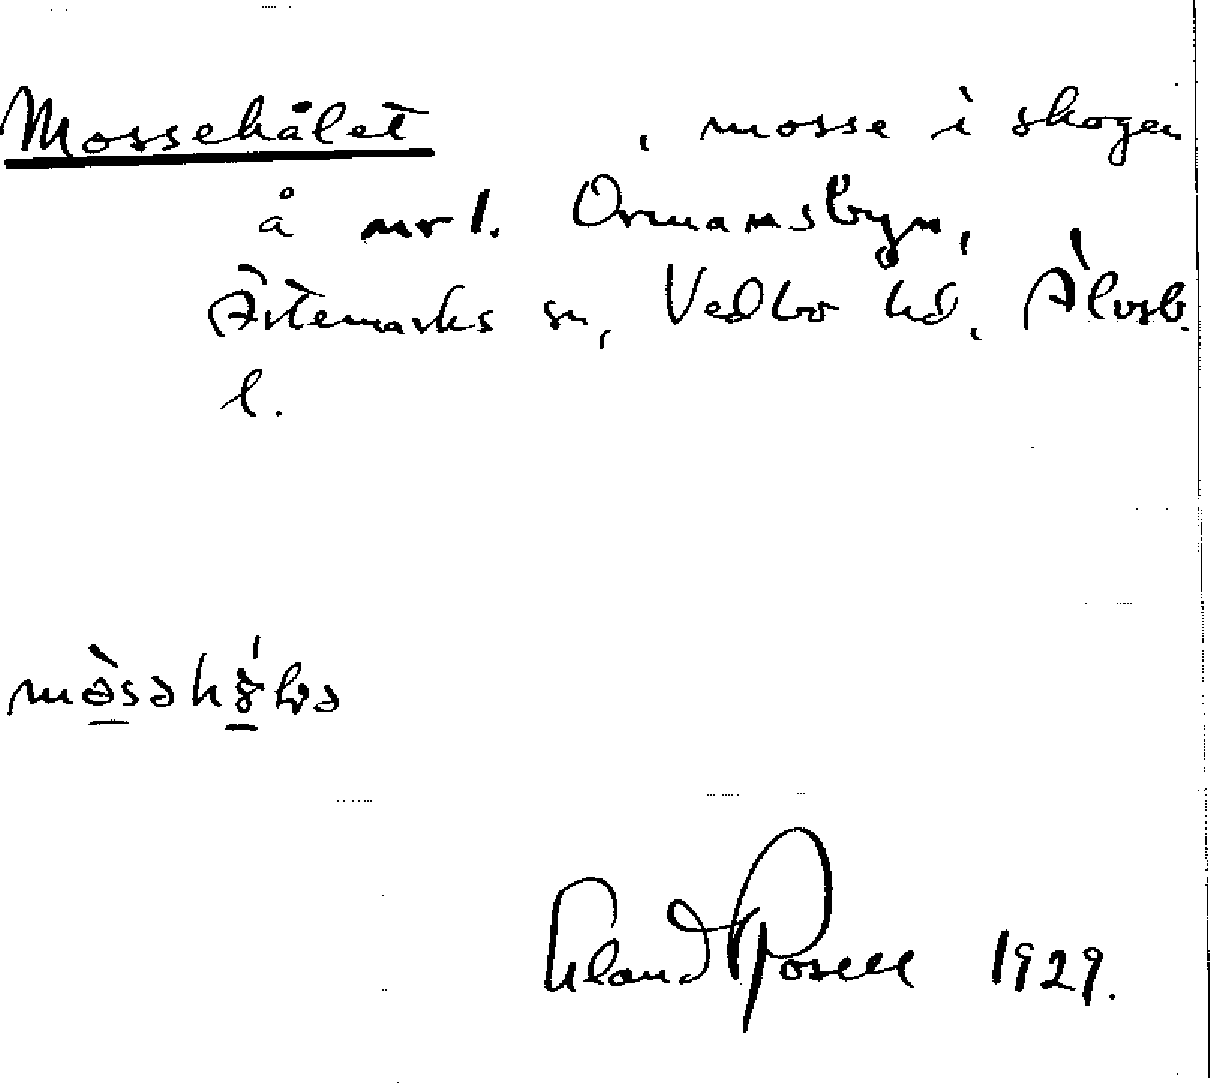 Mossehålet, mosse i skogen
å nr 1. Ormansbyn,
Ärtemarks sn, Vedbo hd, Älvsb.
l.
Erland Rosell 1929.